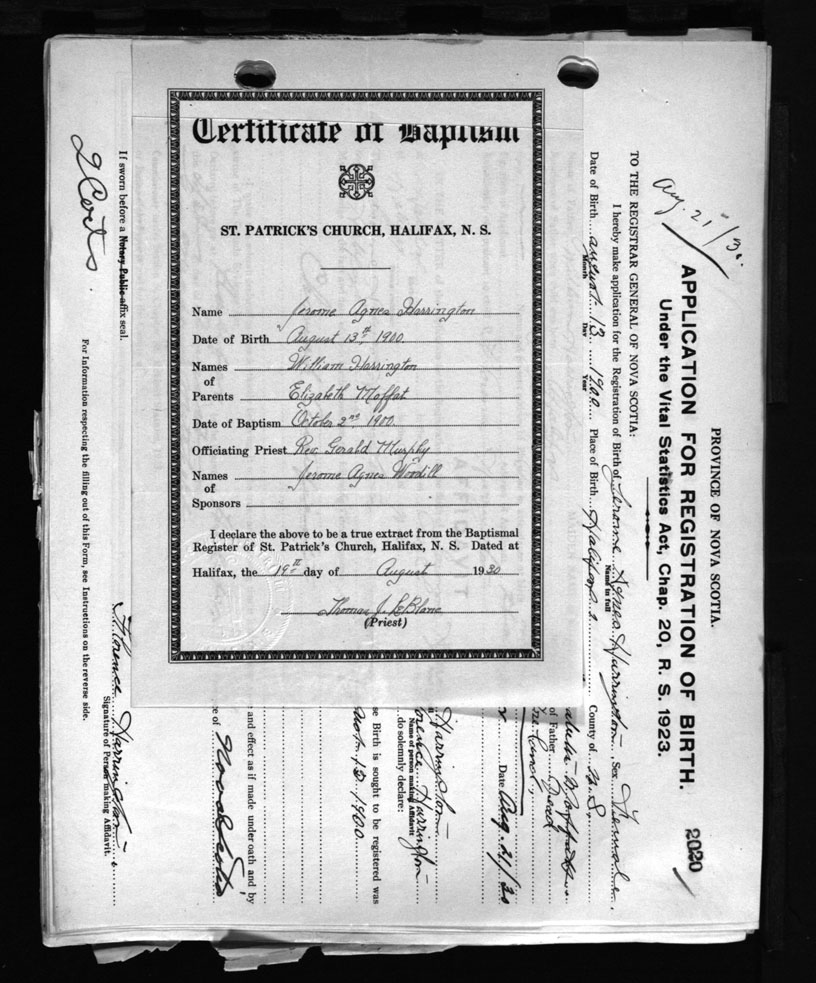 Certificate of Baptism
ST. PATRICK'S CHURCH, HALIFAX, N. S.
Name Jerome Agnes Harrington
Date of Birth August 13th 1900
Names William Harrington
of
Parents Elizabeth Moffat
Date of Baptism October 2nd 1900
Officiating Priest Rev. Gerald Murphy
Names Jerome Agnes Woodill
of
Sponsors
I declare the above to be a true extract from the Baptismal
Register of St. Patrick's Church, Halifax, N. S. Dated at
Halifax, the 19th day of August 1930
Thomas J. LeBlanc
(Priest)
PROVINCE OF NOVA SCOTIA.
APPLICATION FOR REGISTRATION OF BIRTH. 2020
Under the Vital Statistics Act, Chap. 20, R. S. 1923.
Aug. 21/30.
TO THE REGISTRAR GENERAL OF NOVA SCOTIA:
I hereby make application for the Registration of Birth of Jerome Agnes Harrington, Sex Female
Name in full
Date of Birth August 13 1900 Place of Birth Halifax County of
Month Day Year
of Father Dead
Date Aug. 21/30
Harrington
Florence Harrington
Name of person making Affidavit
do solemnly declare:
se Birth is sought to be registered was
13, 1900
and effect as if made under oath and by
ce of
Florence Harrington
Signature of Person making Affidavit.
If sworn before a Notary Public affix seal.
For Information respecting the filling out of this Form, see Instructions on the reverse side.
2 Certs.